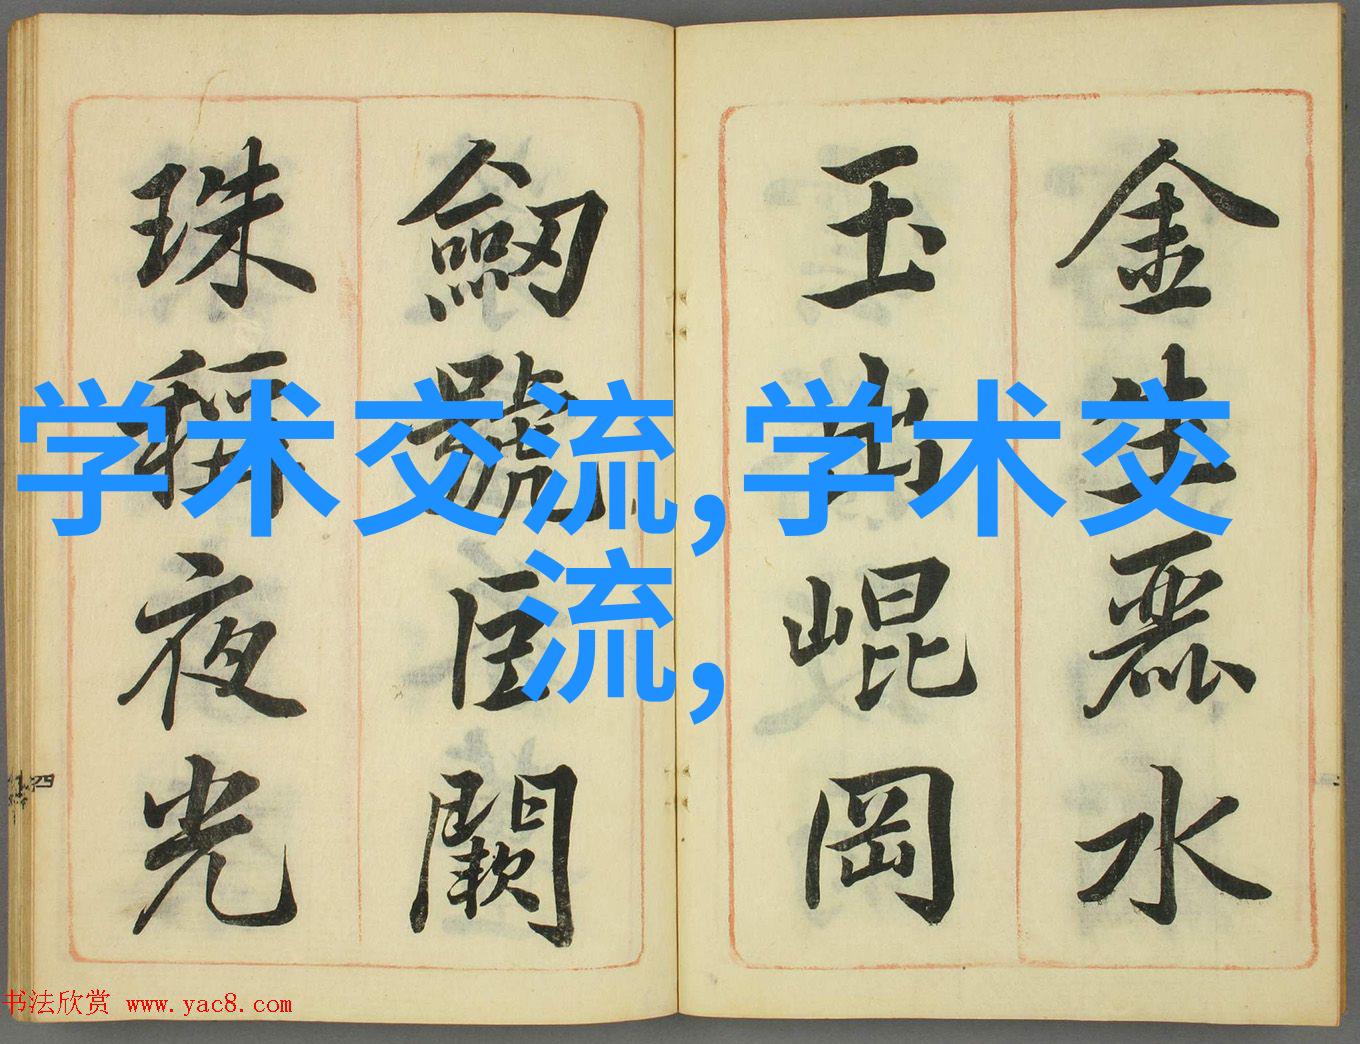 金生麗水
玉出崐岡
劒號巨闕
珠稱夜光
学术交流,学术交
流,
书法欣赏 www.yac8.com